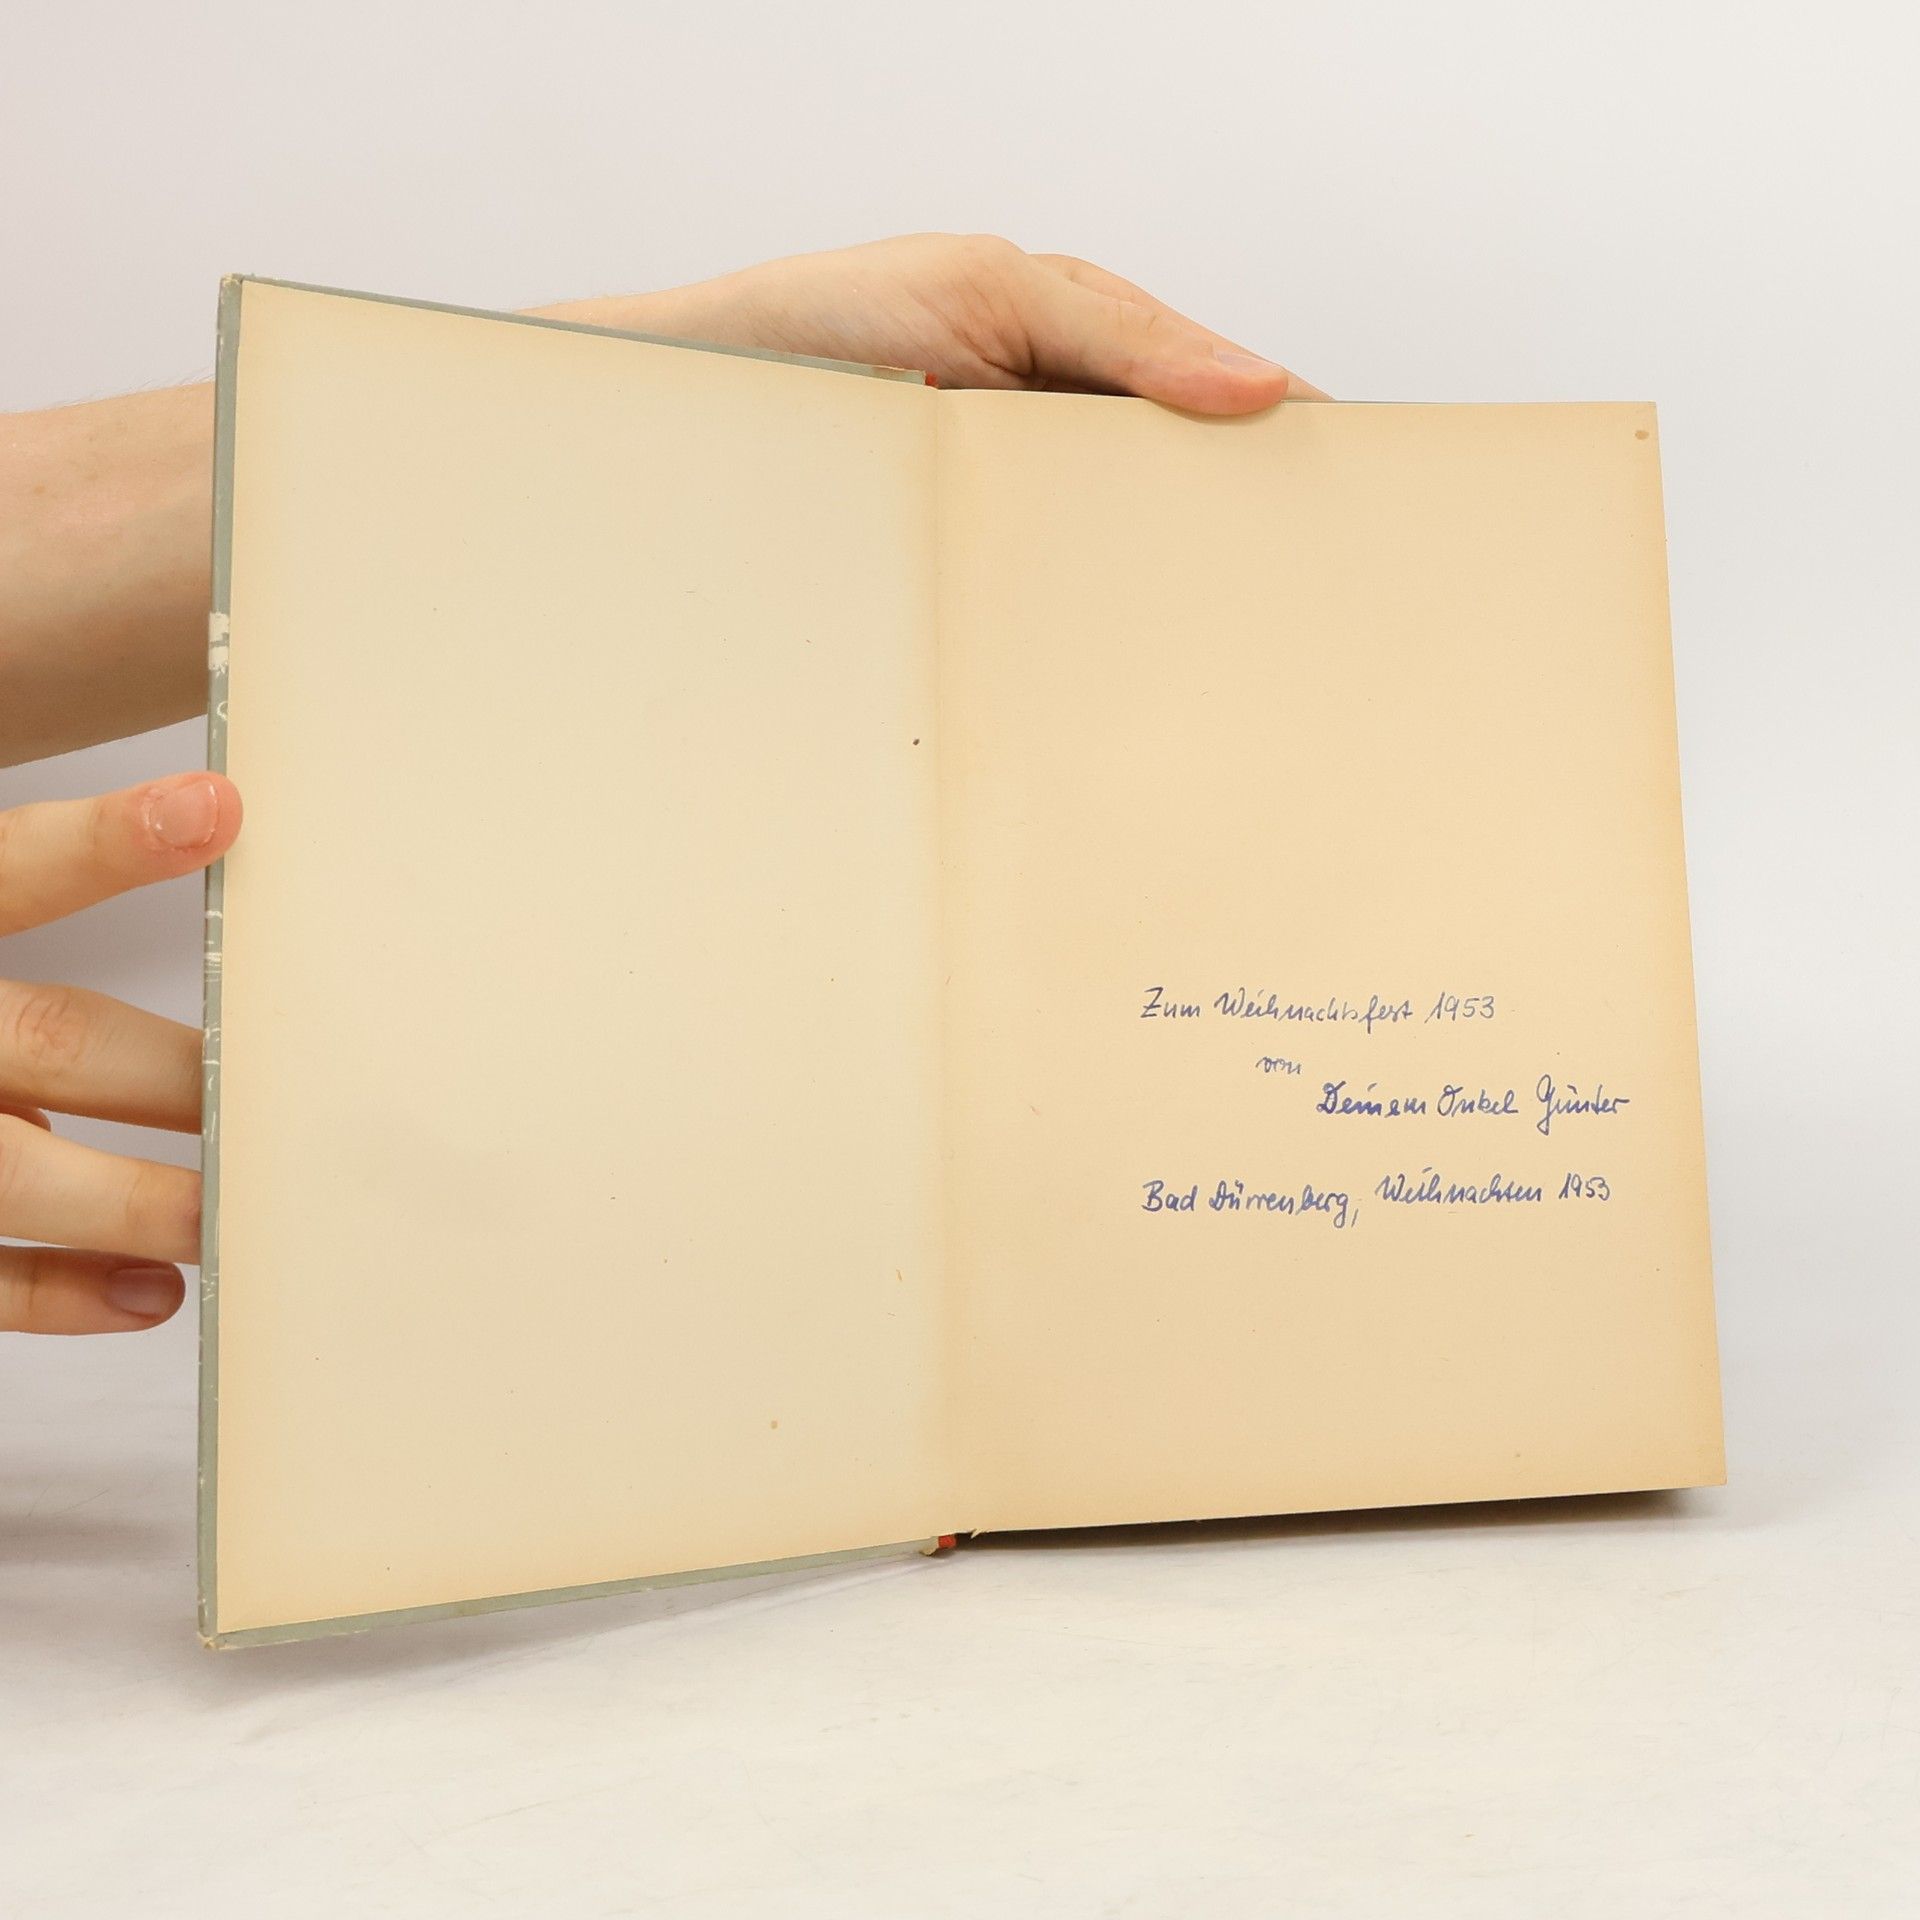 Zum Weihnachtsfest 1953
von
Deinem Onkel Günter
Bad Dürrenberg, Weihnachten 1953